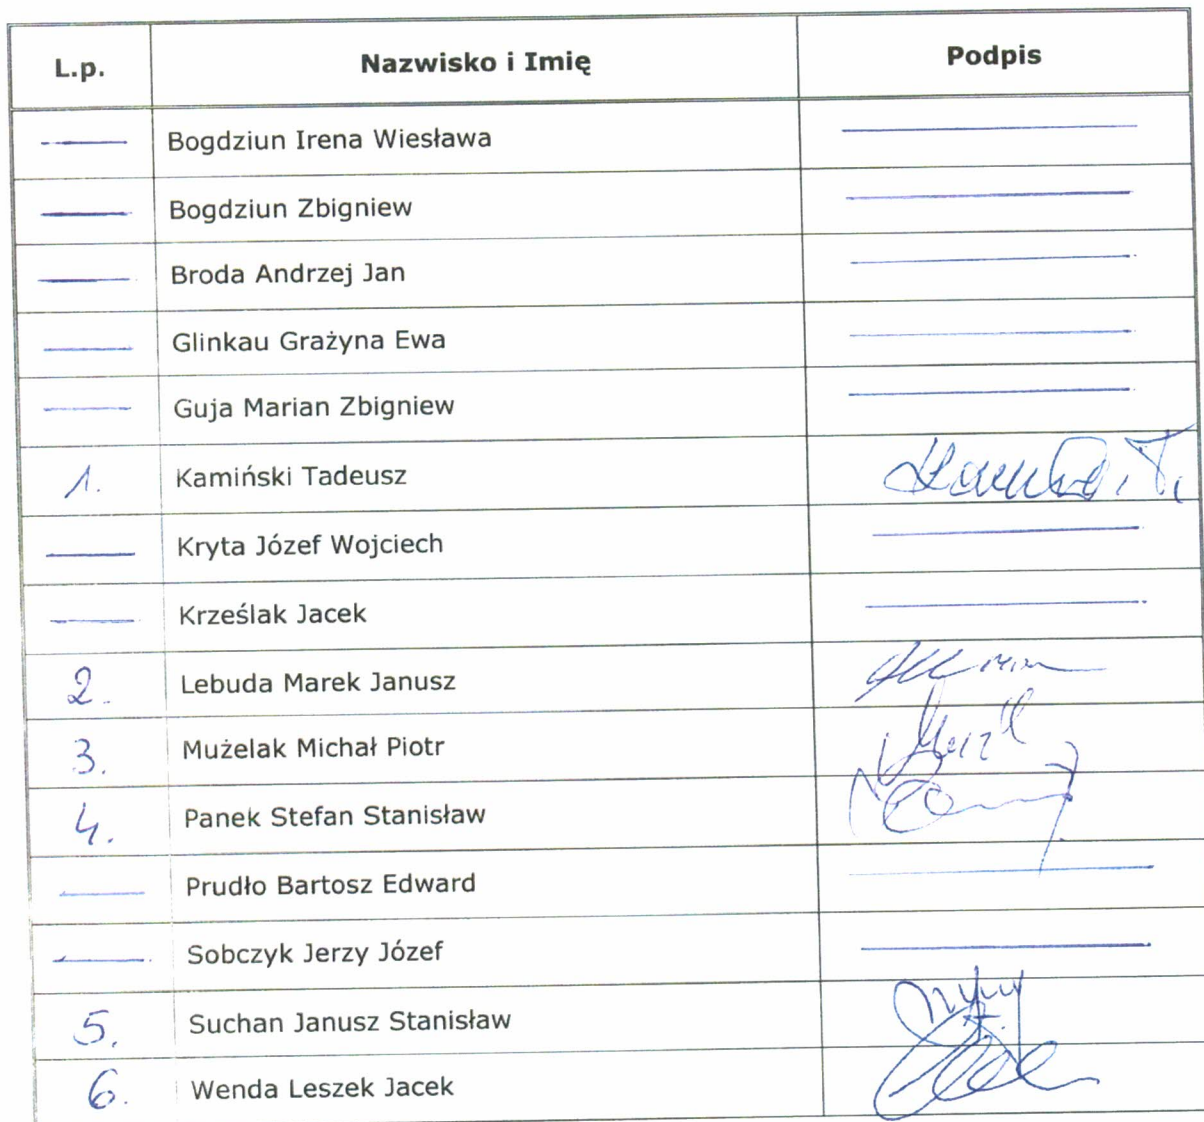 L.p. Nazwisko i Imię Podpis
Bogdziun Irena Wiesława
Bogdziun Zbigniew
Broda Andrzej Jan
Glinkau Grażyna Ewa
Guja Marian Zbigniew
1. Kamiński Tadeusz
Kryta Józef Wojciech
Krześlak Jacek
2. Lebuda Marek Janusz
3. Mużelak Michał Piotr
4. Panek Stefan Stanisław
Prudło Bartosz Edward
Sobczyk Jerzy Józef
5. Suchan Janusz Stanisław
6. Wenda Leszek Jacek